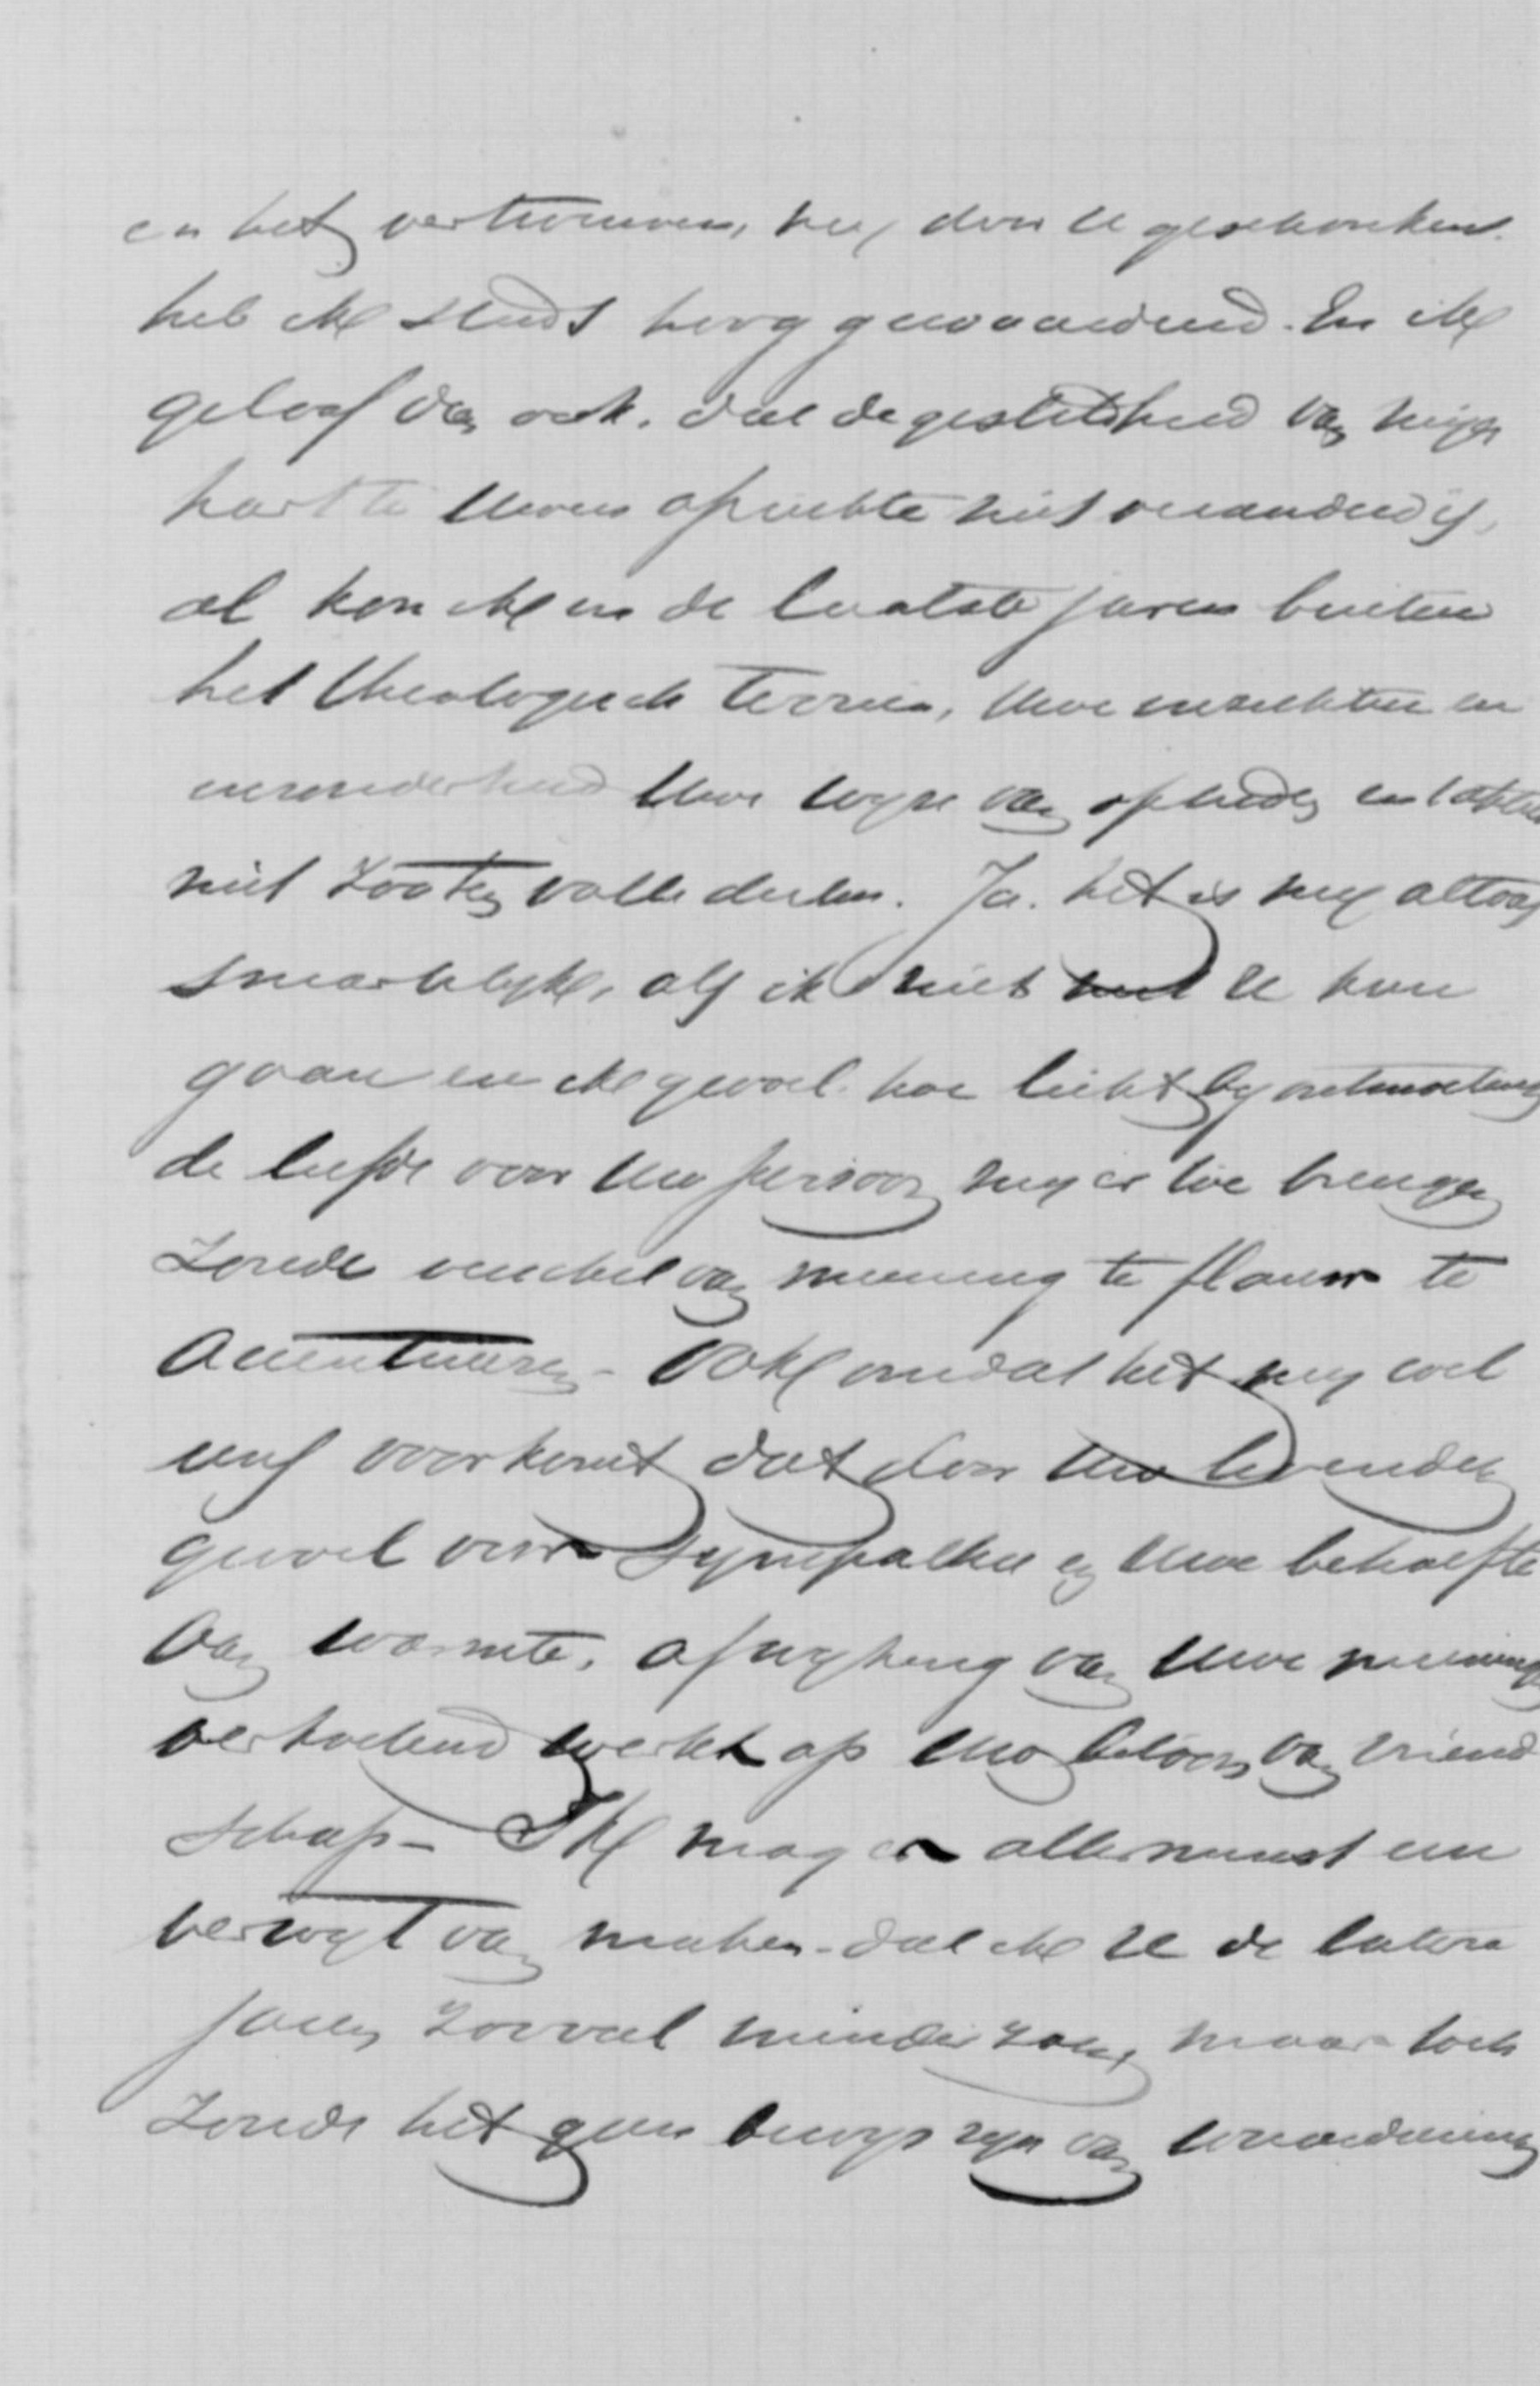 en het vertrouwen, mij door U geschonken.
heb ik steeds hoog gewaardeerd. En ik
geloof dan ook, dat de gesteldheid van mijn
hart te Uwen opzichte niet veranderd is,
al kon ik in de laatste jaren buiten
het theologisch terrein, Uwe inzichten en
inzonderheid Uwe wijze van optreden en
niet zoo ten volle deelen. Ja. het is mij altoos
smartelijk, als ik niet met U kan
gaan en ik gevoel hoe licht bij ontmoeting
de liefde voor Uw persoon mij er toe brengen
zoude verschil van meening te flauw te
accentueren - Ook omdat het mij wel
eens voorkomt dat door Uw levendig
gevoel voor sympathie en Uwe behoefte
van warmte, afwijking van Uwe meening
verkoelend werkt op Uw betoon van vriend
schap - Ik mag er allerminst een
verwijt van maken - dat ik U de latere
jaren zooveel minder zag, maar toch
zoude het geen bewijs zijn van waardeering